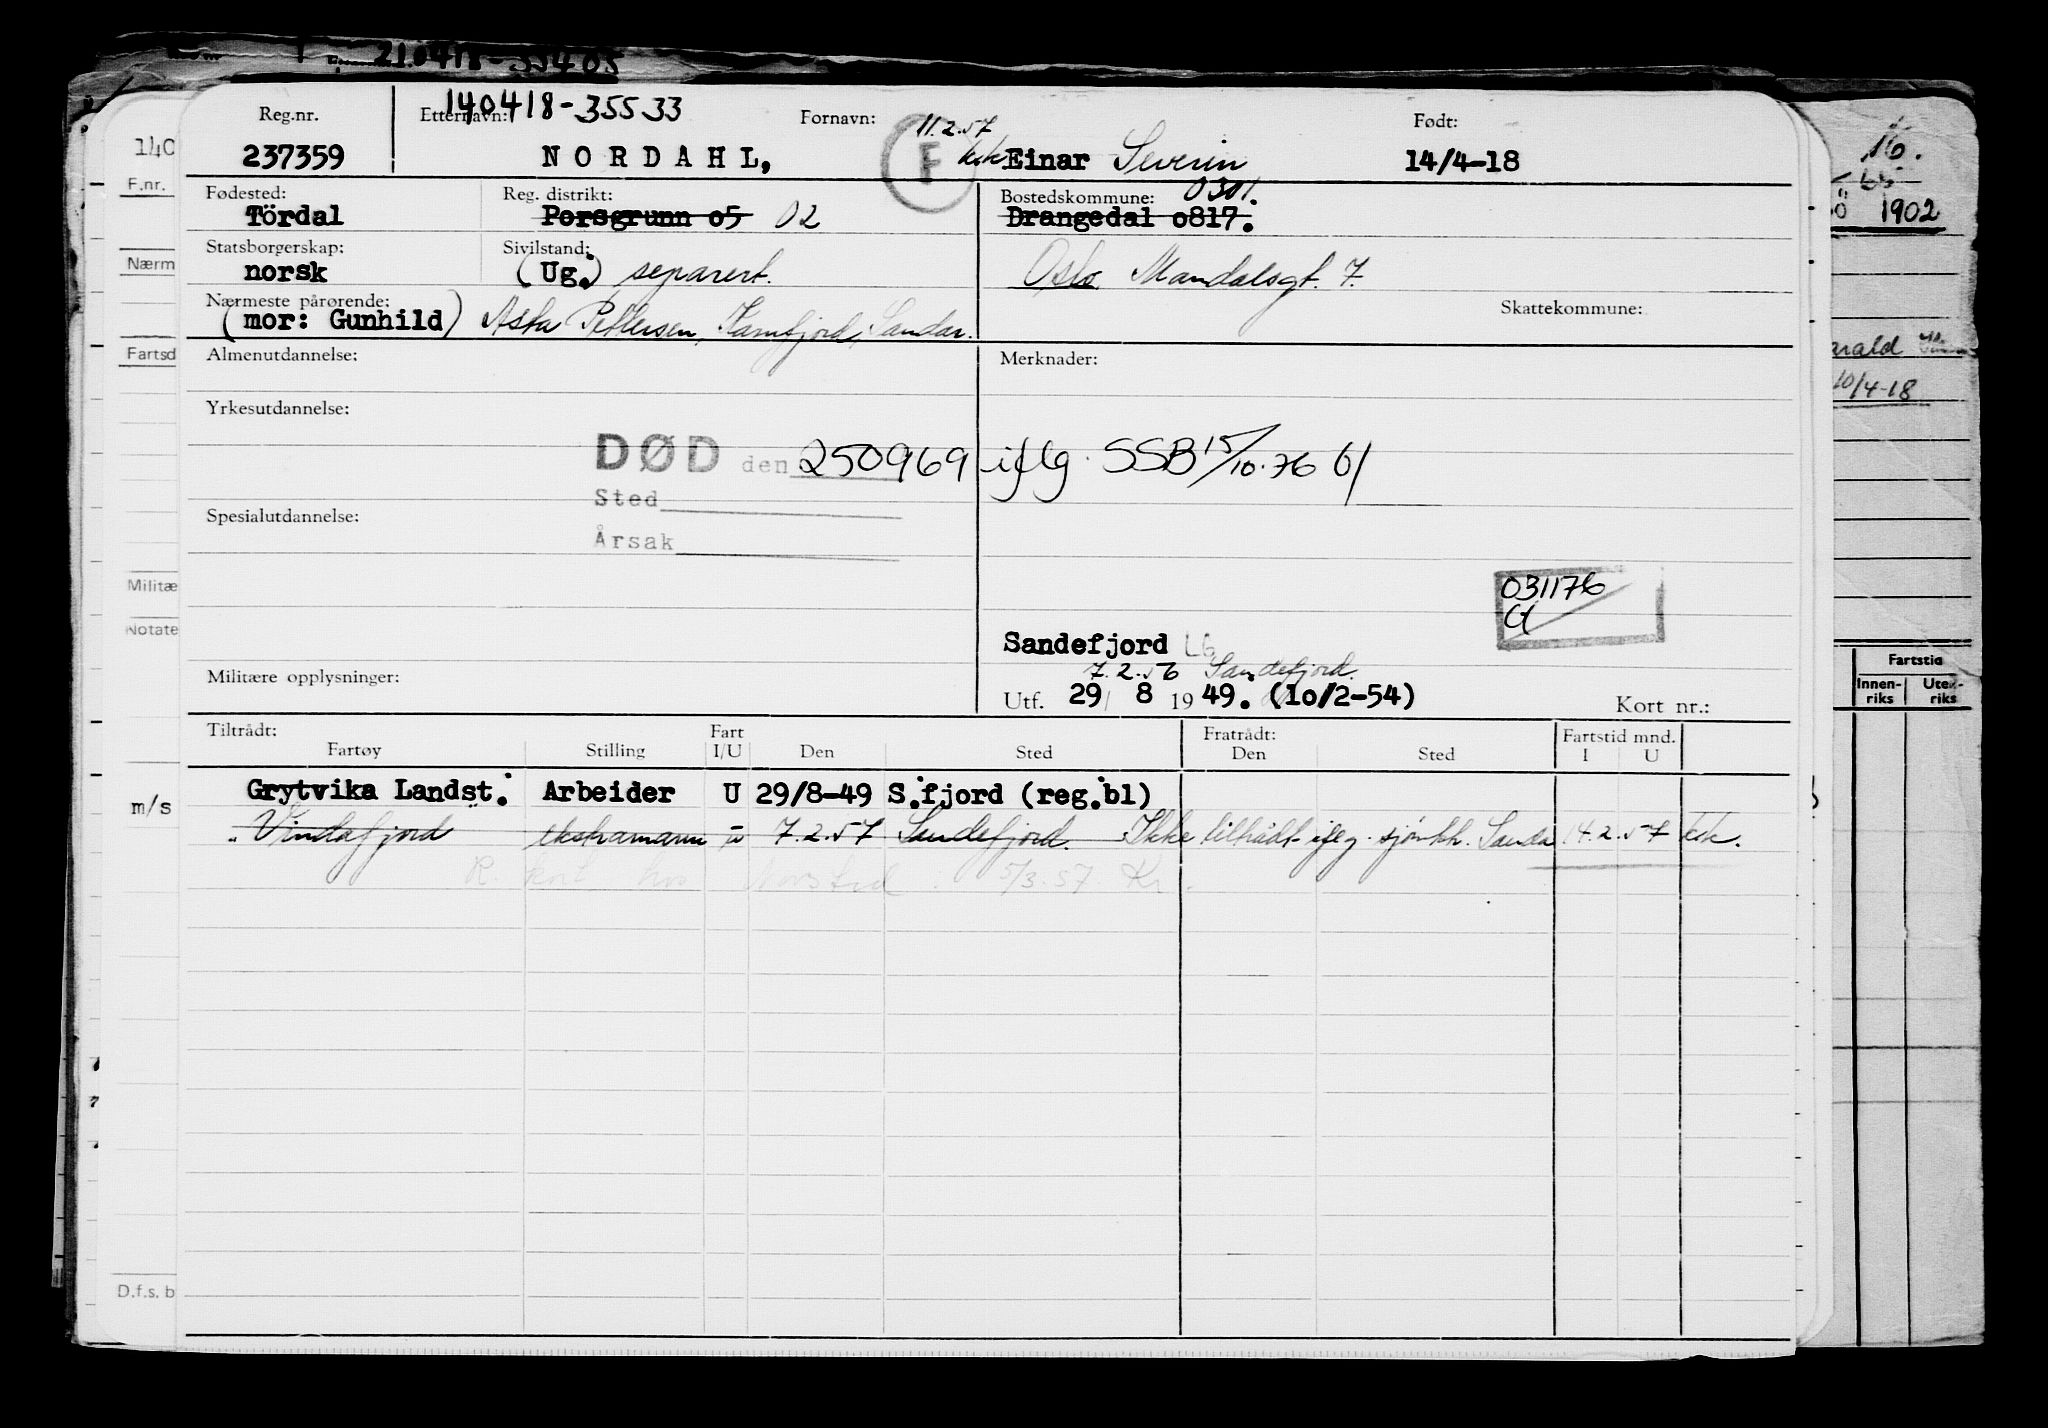 210418-35405
140418-35533
Reg.nr. Etternavn: Fornavn: 11.2.57 Født:
237359 NORDAHL, F ksk Einar Severin 14/4-18
Fødested: Reg. distrikt: Bostedskommune: 0301.
Tördal Porsgrunn o5 02 Drangedal o817.
Statsborgerskap: Sivilstand:
norsk (Ug.) separert. Oslo Mandalsgt. 7.
Nærmeste pårørende: Skattekommune:
(mor: Gunhild) Asta Pettersen, Kamfjord, Sandar.
Almenutdannelse: Merknader:
Yrkesutdannelse:
DØD den 250969 iflg. SSB 15/10.76
Sted
Spesialutdannelse:
Årsak
031176
Sandefjord LG
7.2.56 Sandefjord.
Militære opplysninger: Utf. 29/ 8 1949. (1o/2-54) Kort nr.:
Tiltrådt: Fart Fratrådt: Fartstid mnd.
Fartøy Stilling I/U Den Sted Den Sted I U
Grytvika Landst. Arbeider U 29/8-49 S.fjord (reg.bl)
" Vindafjord ekstramann u 7.2.57 Sandefjord. Ikke tiltrådt iflg. sjømkk. Sanda 14.2.57 ksk.
R. kort hos 5/3.57. Kr.
140
F.nr.
Nærm
Fartsd
Militæ
Notate
m/s
D.f.s. b
16.
1902
arald
10/4-18
Fartstid
Innen-riks Uten-riks